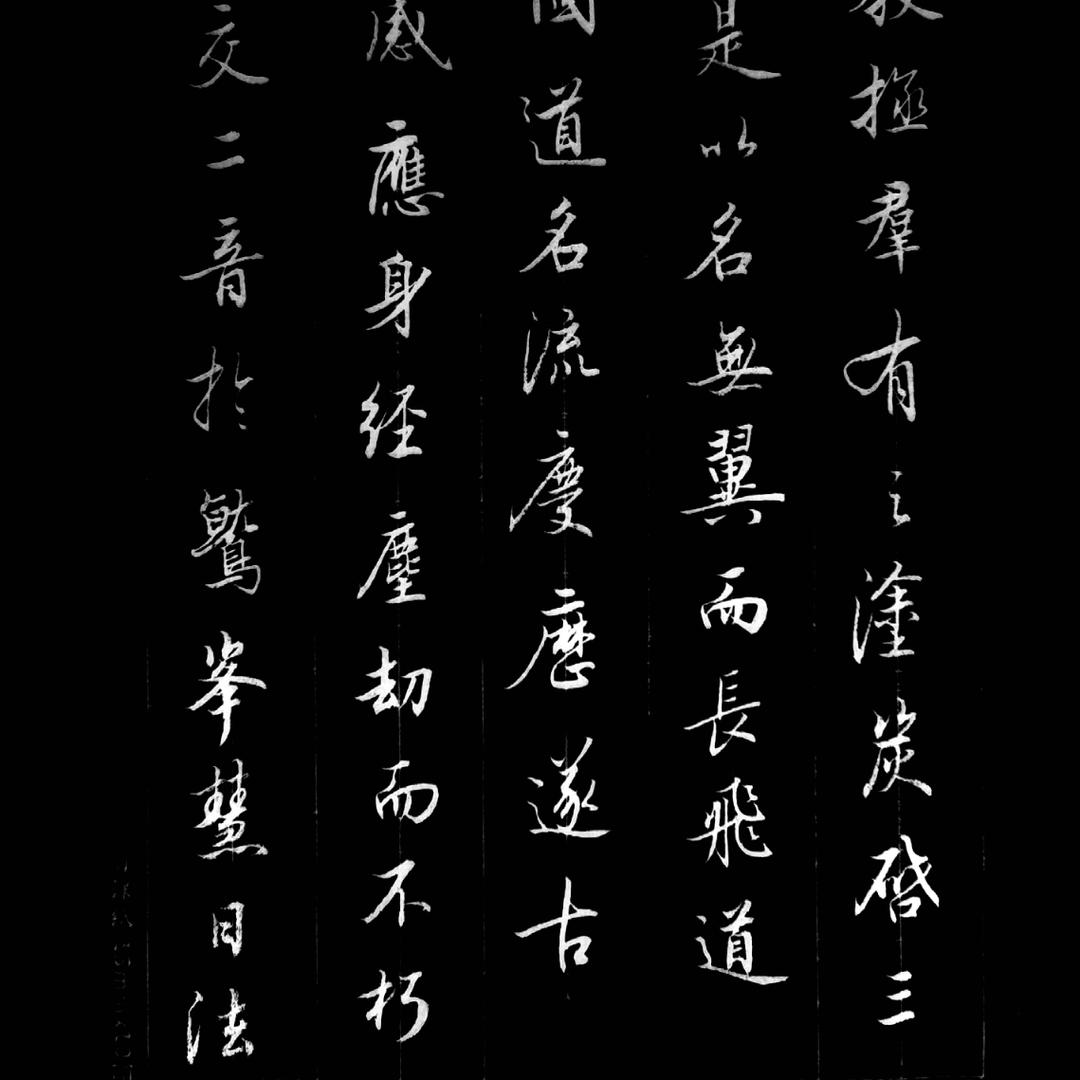 拯羣有之塗炭啓三
是以名無翼而長飛道
國道名流慶歷遂古
感應身經塵劫而不朽
交二音於鷲峯慧日法